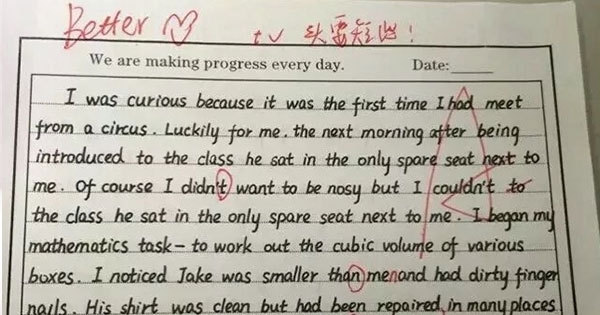 Better
t 头要短些!
We are making progress every day. Date:
I was curious because it was the first time I had meet
from a circus. Luckily for me. the next morning after being
introduced to the class he sat in the only spare seat next to
me. Of course I didn't want to be nosy but I couldn't to
the class he sat in the only spare seat next to me. I began my
mathematics task - to work out the cubic volume of various
boxes. I noticed Jake was smaller than menand had dirty finger
nails. His shirt was clean but had been repaired in many places